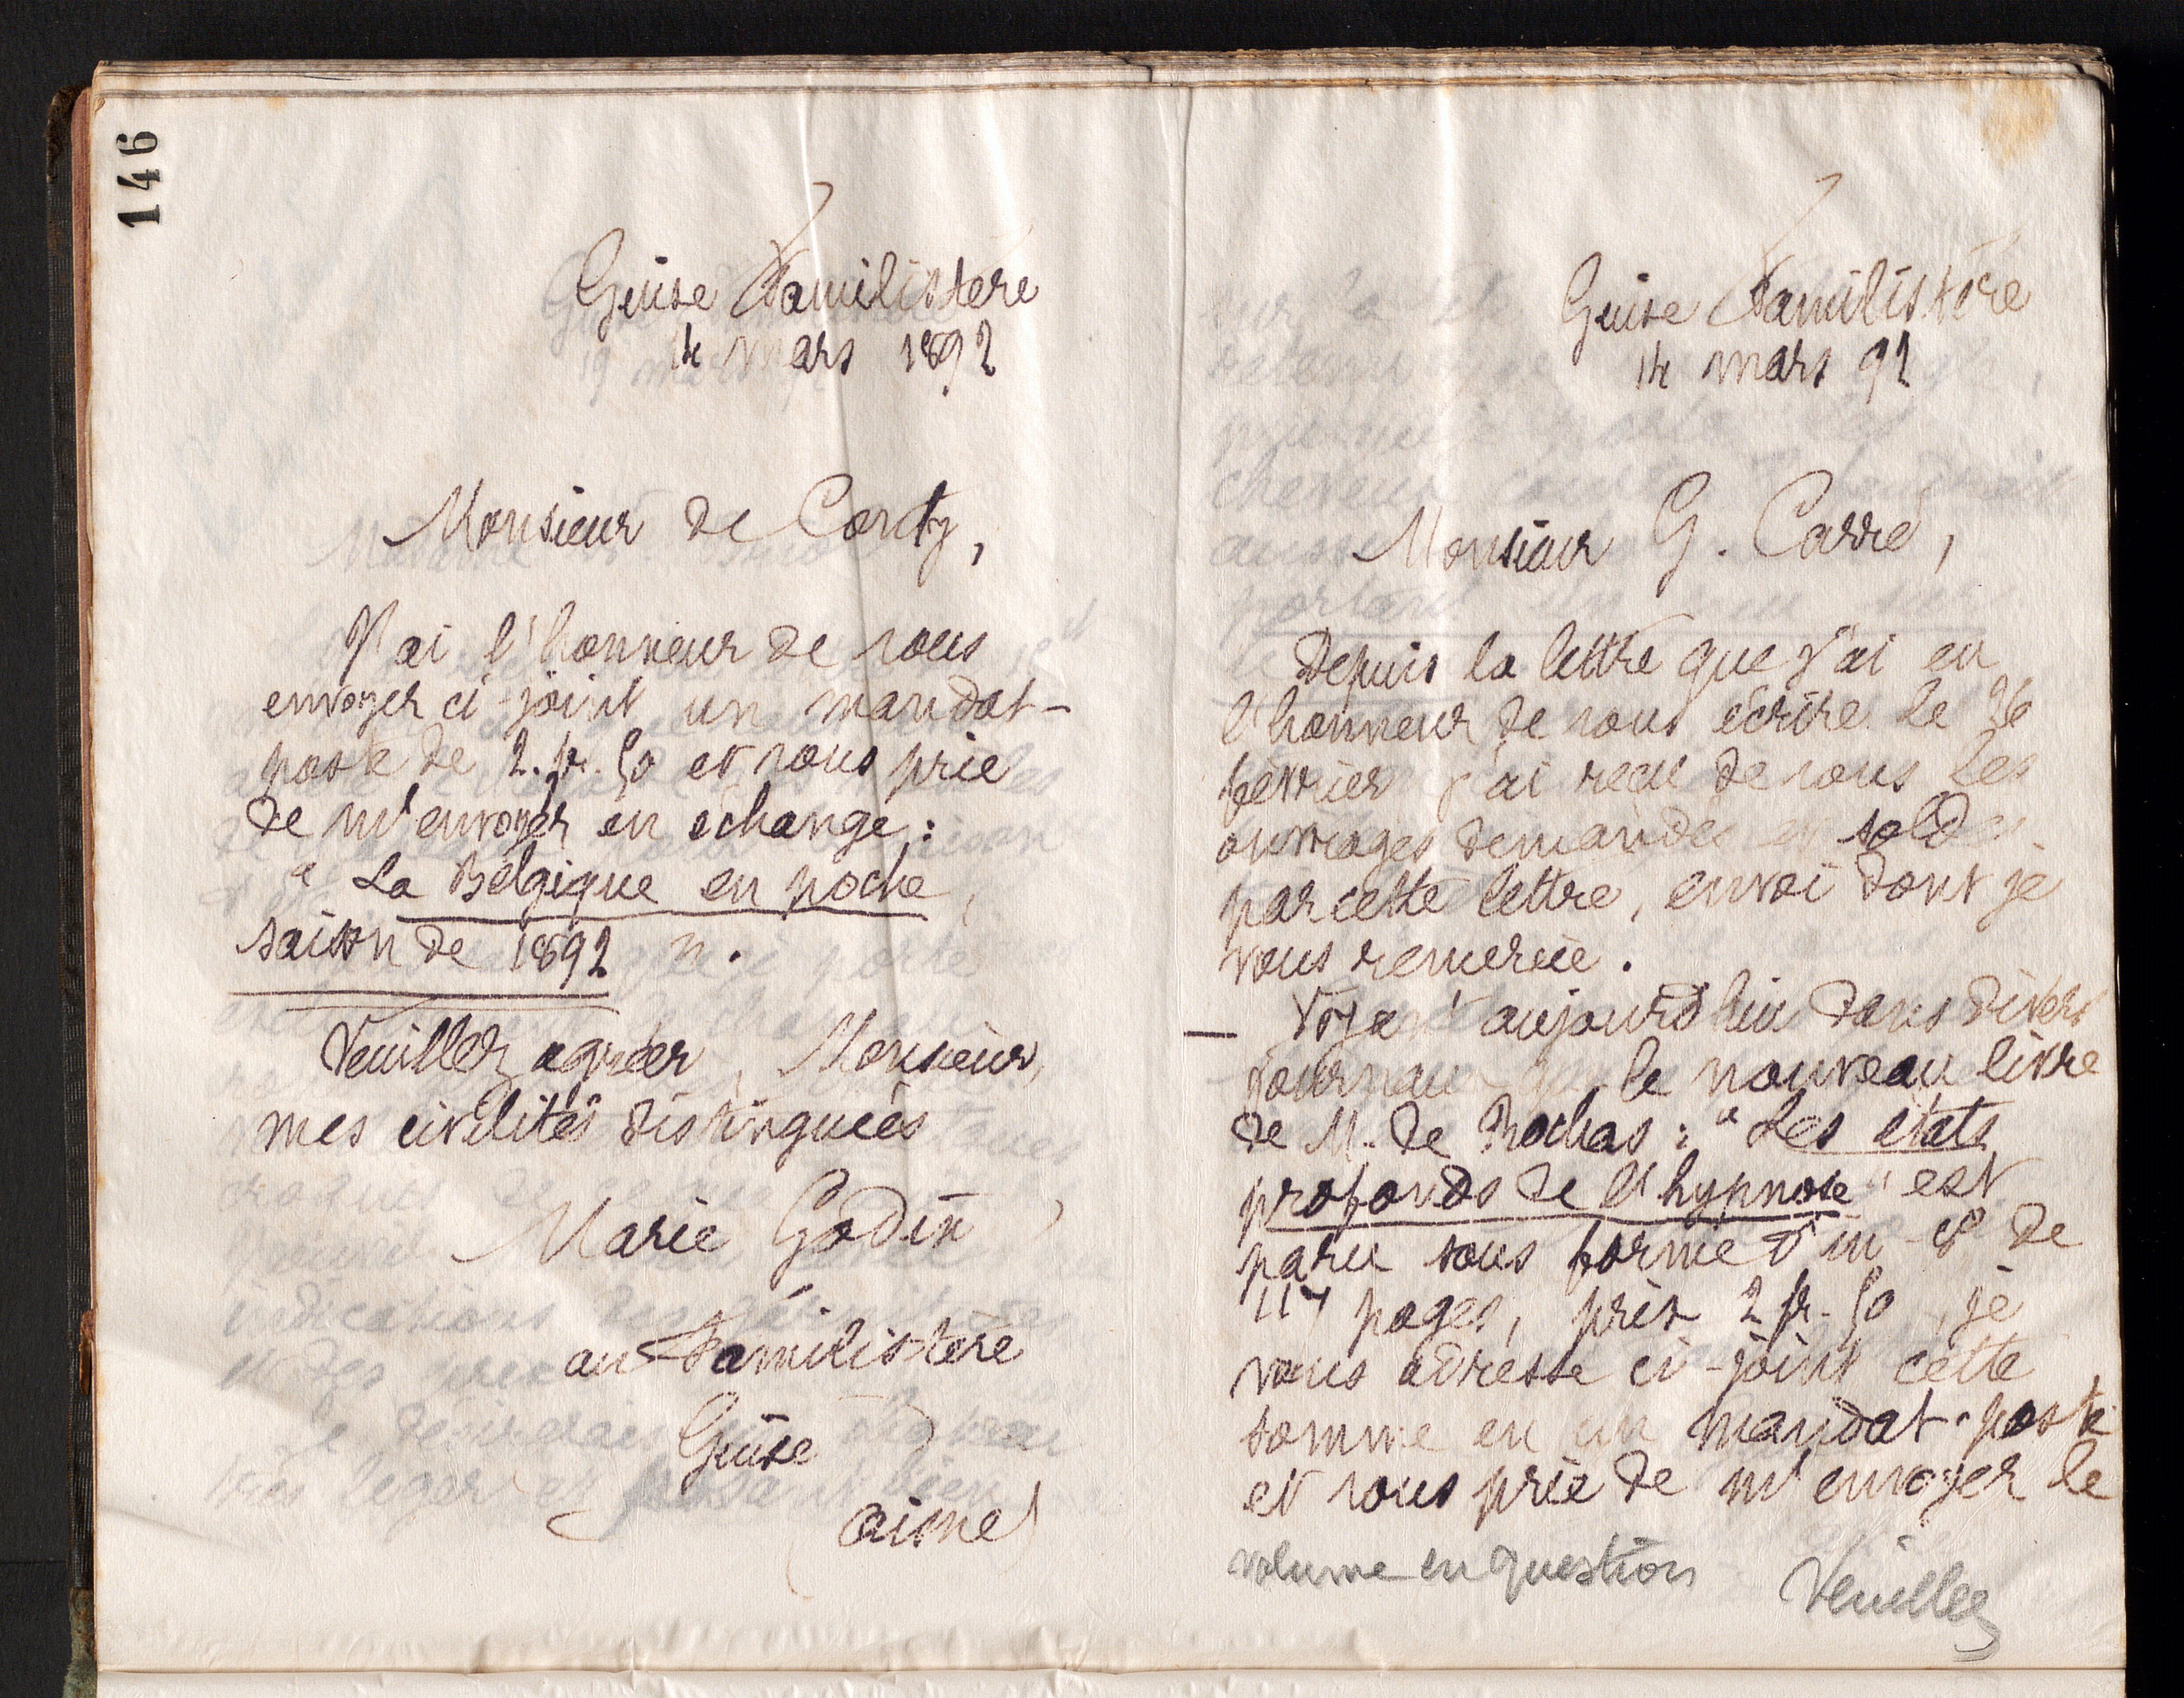 146
Guise Familistère
14 mars 1892
Monsieur de Conty,
J'ai l'honneur de vous
envoyer ci-joint un mandat-
poste de 2. fr. 50 et vous prie
de m'envoyer en échange :
" La Belgique en poche,
saison de 1892 ".
Veuillez agréer, Monsieur,
mes civilités distinguées
Marie Godin
au Familistère
Guise
(aisne)
Guise Familistère
14 mars 92
Monsieur G. Carré,
Depuis la lettre que j'ai eu
l'honneur de vous écrire le 26
février j'ai reçu de vous les
ouvrages demandés et soldés
par cette lettre, envoi dont je
vous remercie.
— Voyant aujourd'hui dans divers
journaux que le nouveau livre
de M. de Rochas : " Les états
profonds de l'hypnose " est
paru sous forme d'in-8° de
117 pages, prix 2 fr. 50, je
vous adresse ci-joint cette
somme en un mandat-poste
et vous prie de m'envoyer le
volume en question Veuillez